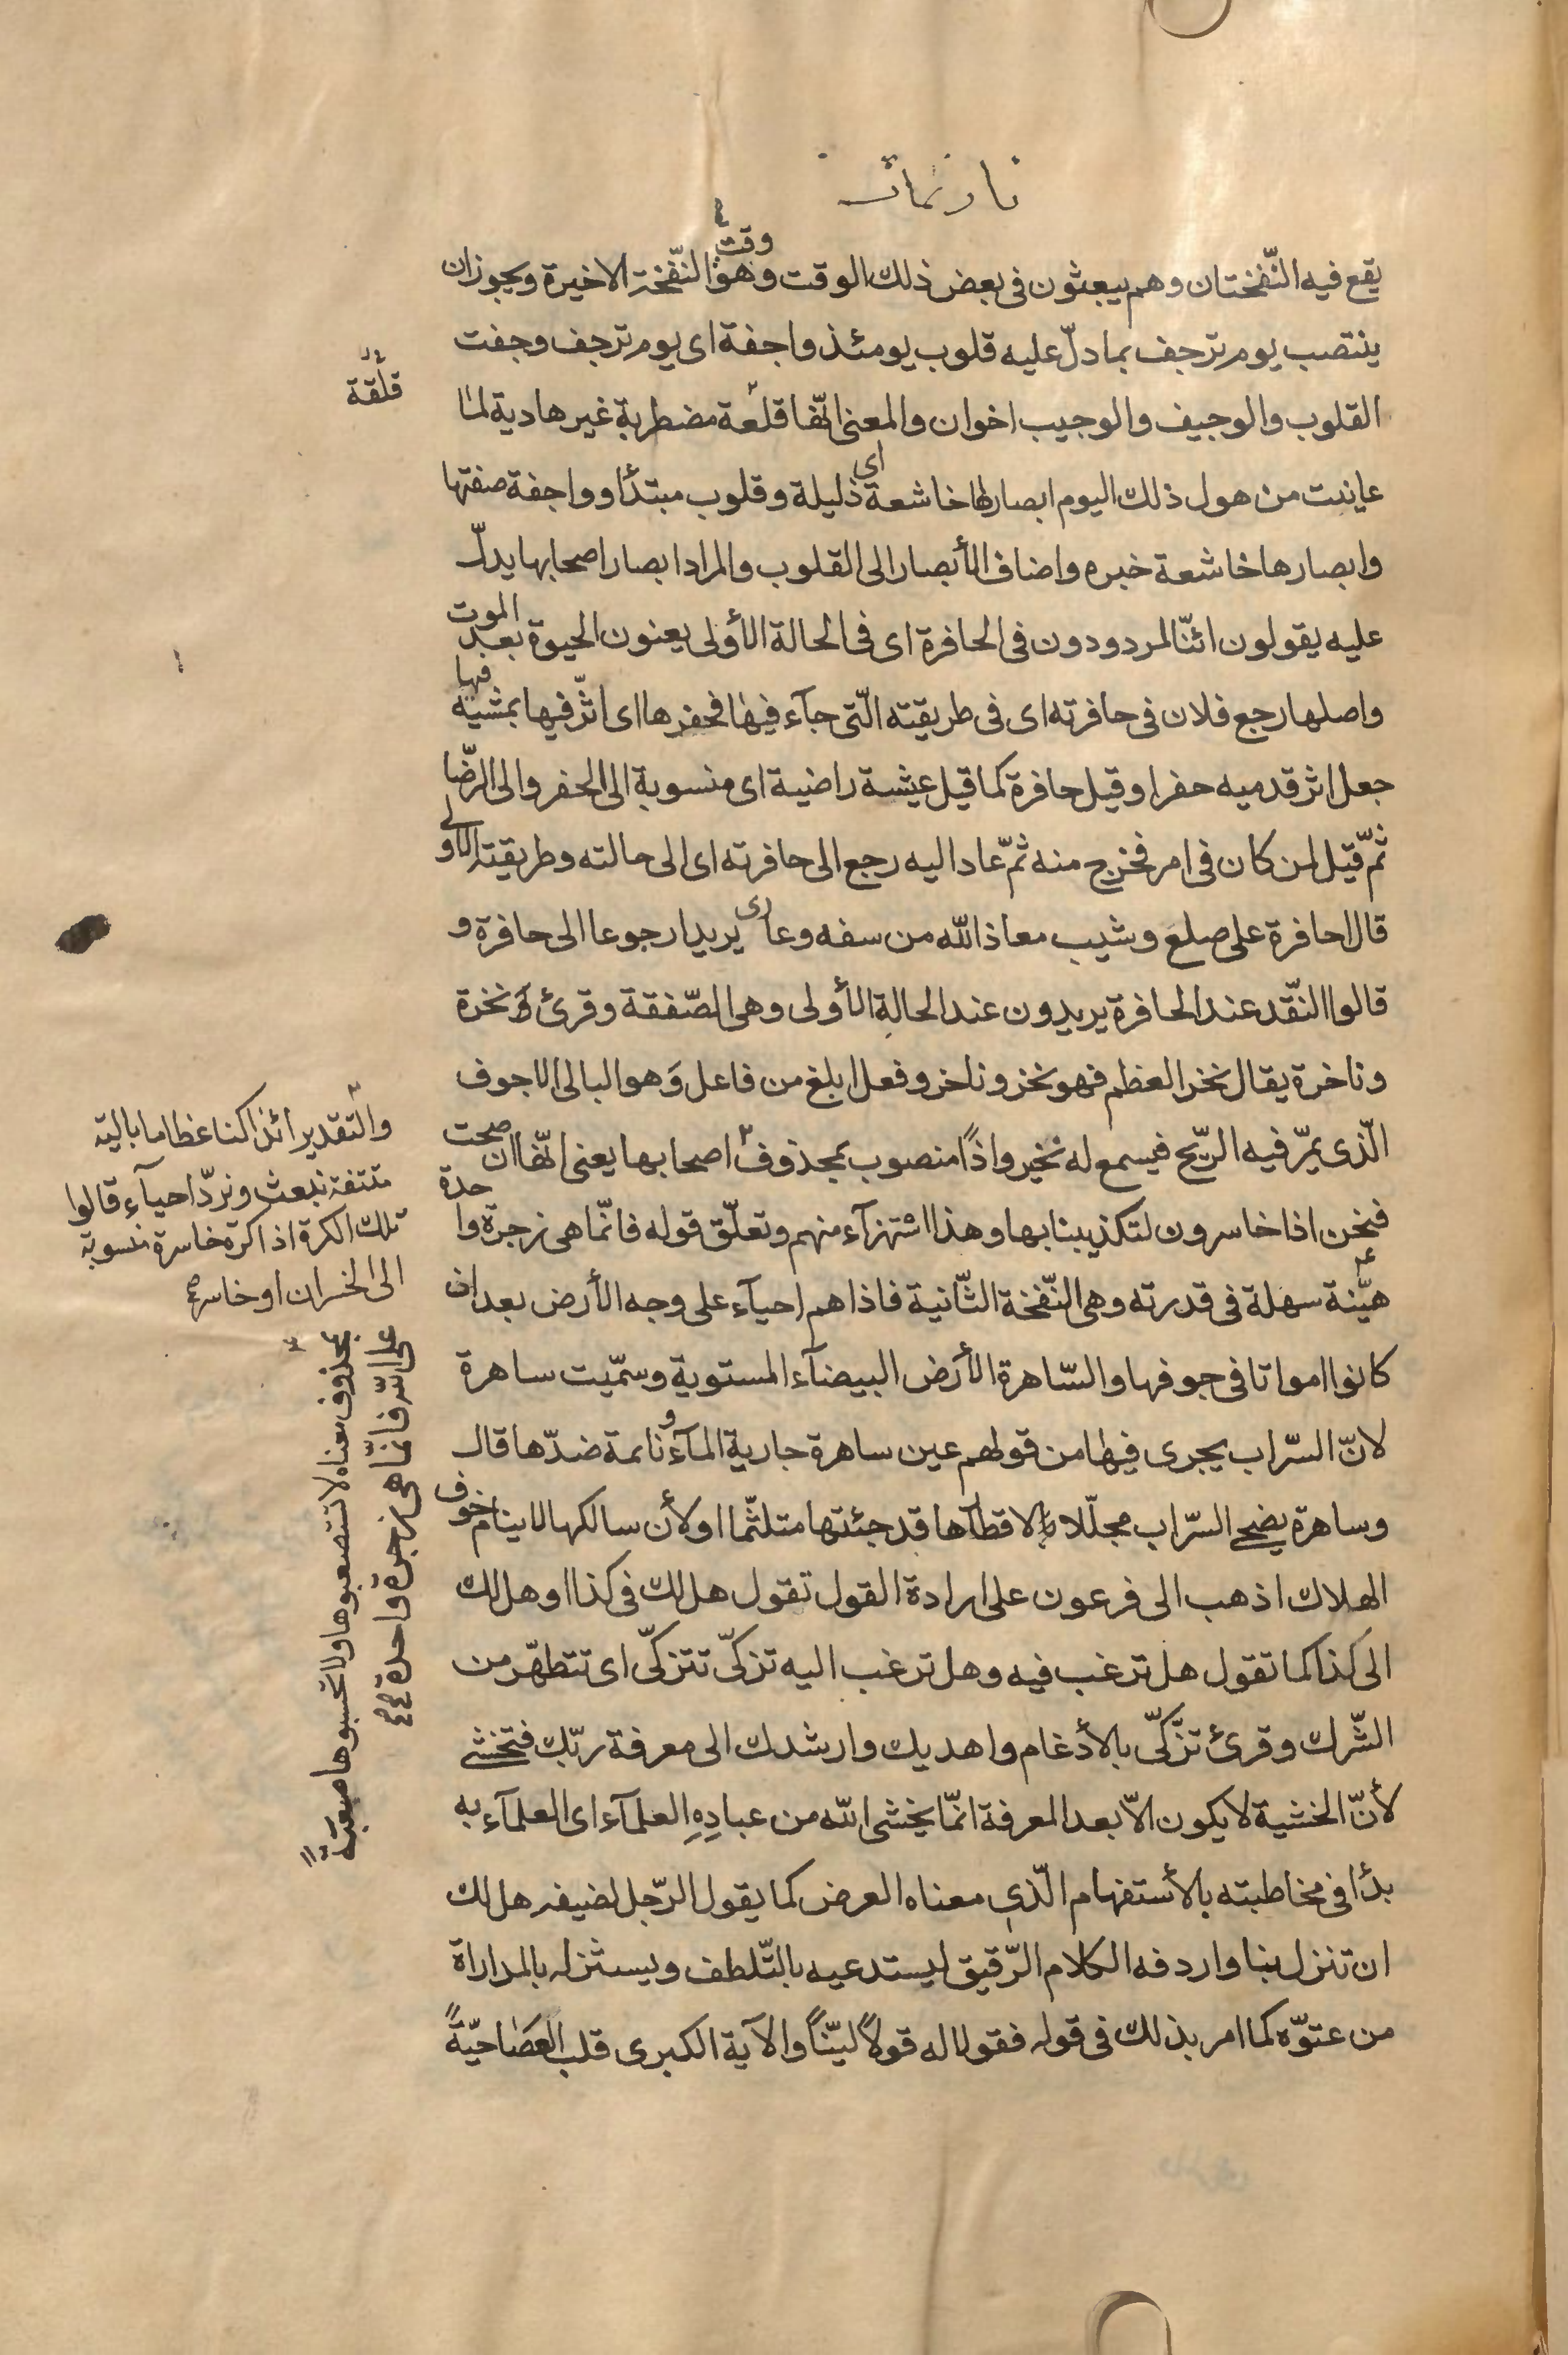 يقع فيه النّفختان وهم يبعثون فى بعض ذلك الوقت وهو وقت النّفخة الاخيرة ويجوز ان
ينتصب يوم ترجف بما دلّ عليه قلوب يومئذ واجفة اى يوم ترجف وجفت
القلوب والوجيف والوجيب اخوان والمعنى انّها قلعة مضطربة غير هادية لما
عاينت من هول ذلك اليوم ابصارها خاشعة اى ذليلة وقلوب مبتدأ وواجفة صفتها
وابصارها خاشعة خبره واضاف الأبصار الى القلوب والمراد ابصار اصحابها يدلّ
عليه يقولون ائنّا لمردودون فى الحافرة اى فى الحالة الأولى يعنون الحيوة بعد الموت
واصلها رجع فلان فى حافرته اى فى طريقته الّتى جآء فيها فحفرها اى اثّر فيها بمشيه فيها
جعل اثر قدميه حفرا وقيل حافرة كما قيل عيشة راضية اى منسوبة الى الحفر والى الرّضا
ثمّ قيل لمن كان فى امر فخرج منه ثمّ عاد اليه رجع الى حافرته اى الى حالته وطريقته الاولى
قال احافرة على صلع وشيب معاذ الله من سفه وعارى يريد ارجوعا الى حافرة و
قالوا النّقد عند الحافرة يريدون عند الحالة الأولى وهى الصّفقة وقرئ نخرة
وناخرة يقال نخر العظم فهو نخر وناخر وفعل ابلغ من فاعل وَهو البالى الاجوف
الّذى يمرّ فيه الرّيح فيسمع له نخير واذًا منصوب بمحذوف اصحابها يعنى انّها ان صحت
فنحن اذا خاسرون لتكذيبنا بها وهذا اشتهزآء منهم وتعلّق قوله فانّما هى زجرة واحدة
هيّنة سهلة فى قدرته وهى النّفخة الثّانية فاذا هم احيآء على وجه الأرض بعد ان
كانوا امواتا فى جوفها والسّاهرة الأرض البيضآء المستوية وسمّيت ساهرة
لانّ السّراب يجرى فيها من قولهم عين ساهرة جارية المآء ونائمة ضدّها قال
وساهرة يضحى السّراب مجلّلا لاقطارها قد جئتها متلثّما او لأن سالكها لا ينام خوف
الهلاك اذهب الى فرعون على ارادة القول تقول هل لك فى كذا او هل لك
الى كذا كما تقول هل ترغب فيه وهل ترغب اليه تزكّى تتزكّى اى تتطهّر من
الشّرك وقرئ تزّكّى بالأدغام واهديك وارشدك الى معرفة ربّك فتخشى
لأنّ الخشية لا يكون الاّ بعد المعرفة انّما يخشى الله من عبادِهِ العلمآء اى العلمآء به
بدأ فى مخاطبته بالأستفهام الّذى معناه العرض كما يقول الرّجل لضيفه هل لك
ان تنزل بنا واردفه الكلام الرّقيق ليستدعيه بالتّلطف ويستنزله بالمداراة
من عتوّه كما امر بذلك فى قوله فقولا له قولاً ليّناً والآية الكبرى قلب العَصَا حيّةً
قلقة
والتقدير ائذا كنا عظاما بالية
متفتتة نبعث ونردّ احيآء قالوا
تلك الكرة اذا كرة خاسرة منسوبة
الى الخسران او خاسر
بمحذوف معناه لا تستصعبوها ولا تحسبوها صعبةً
على الله فانّما هى زجرة واحدة